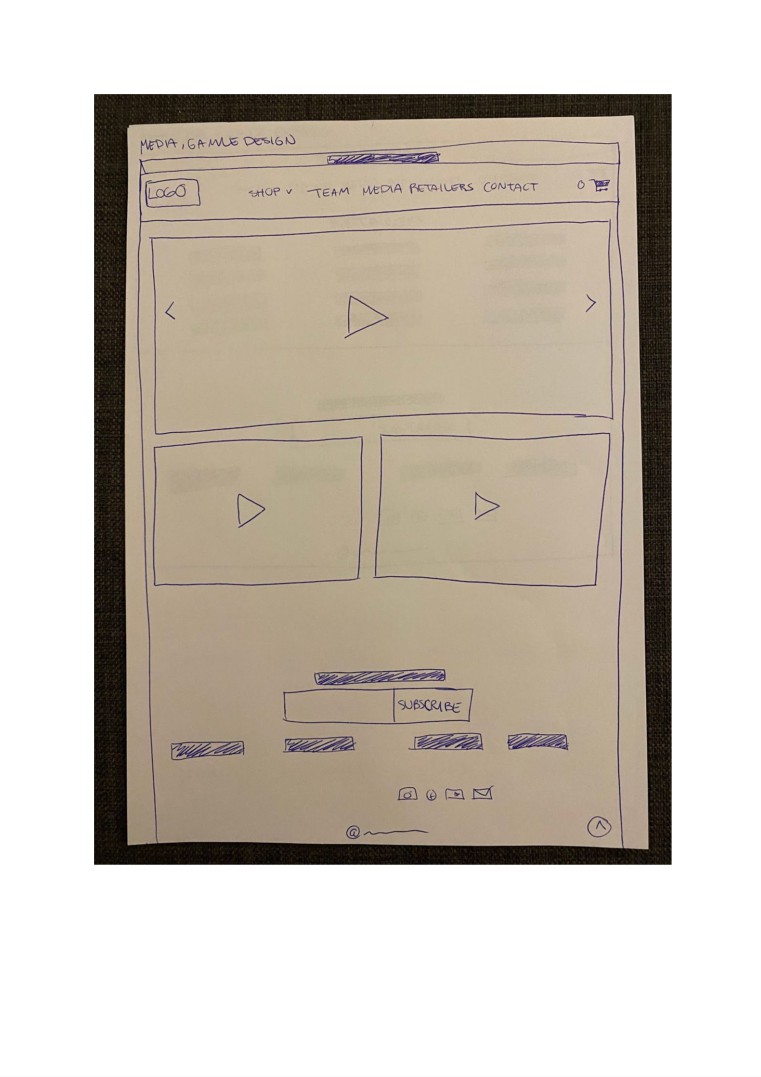 MEDIA, GAMLE DESIGN
LOGO SHOP v TEAM MEDIA RETAILERS CONTACT 0
SUBSCRIBE
@